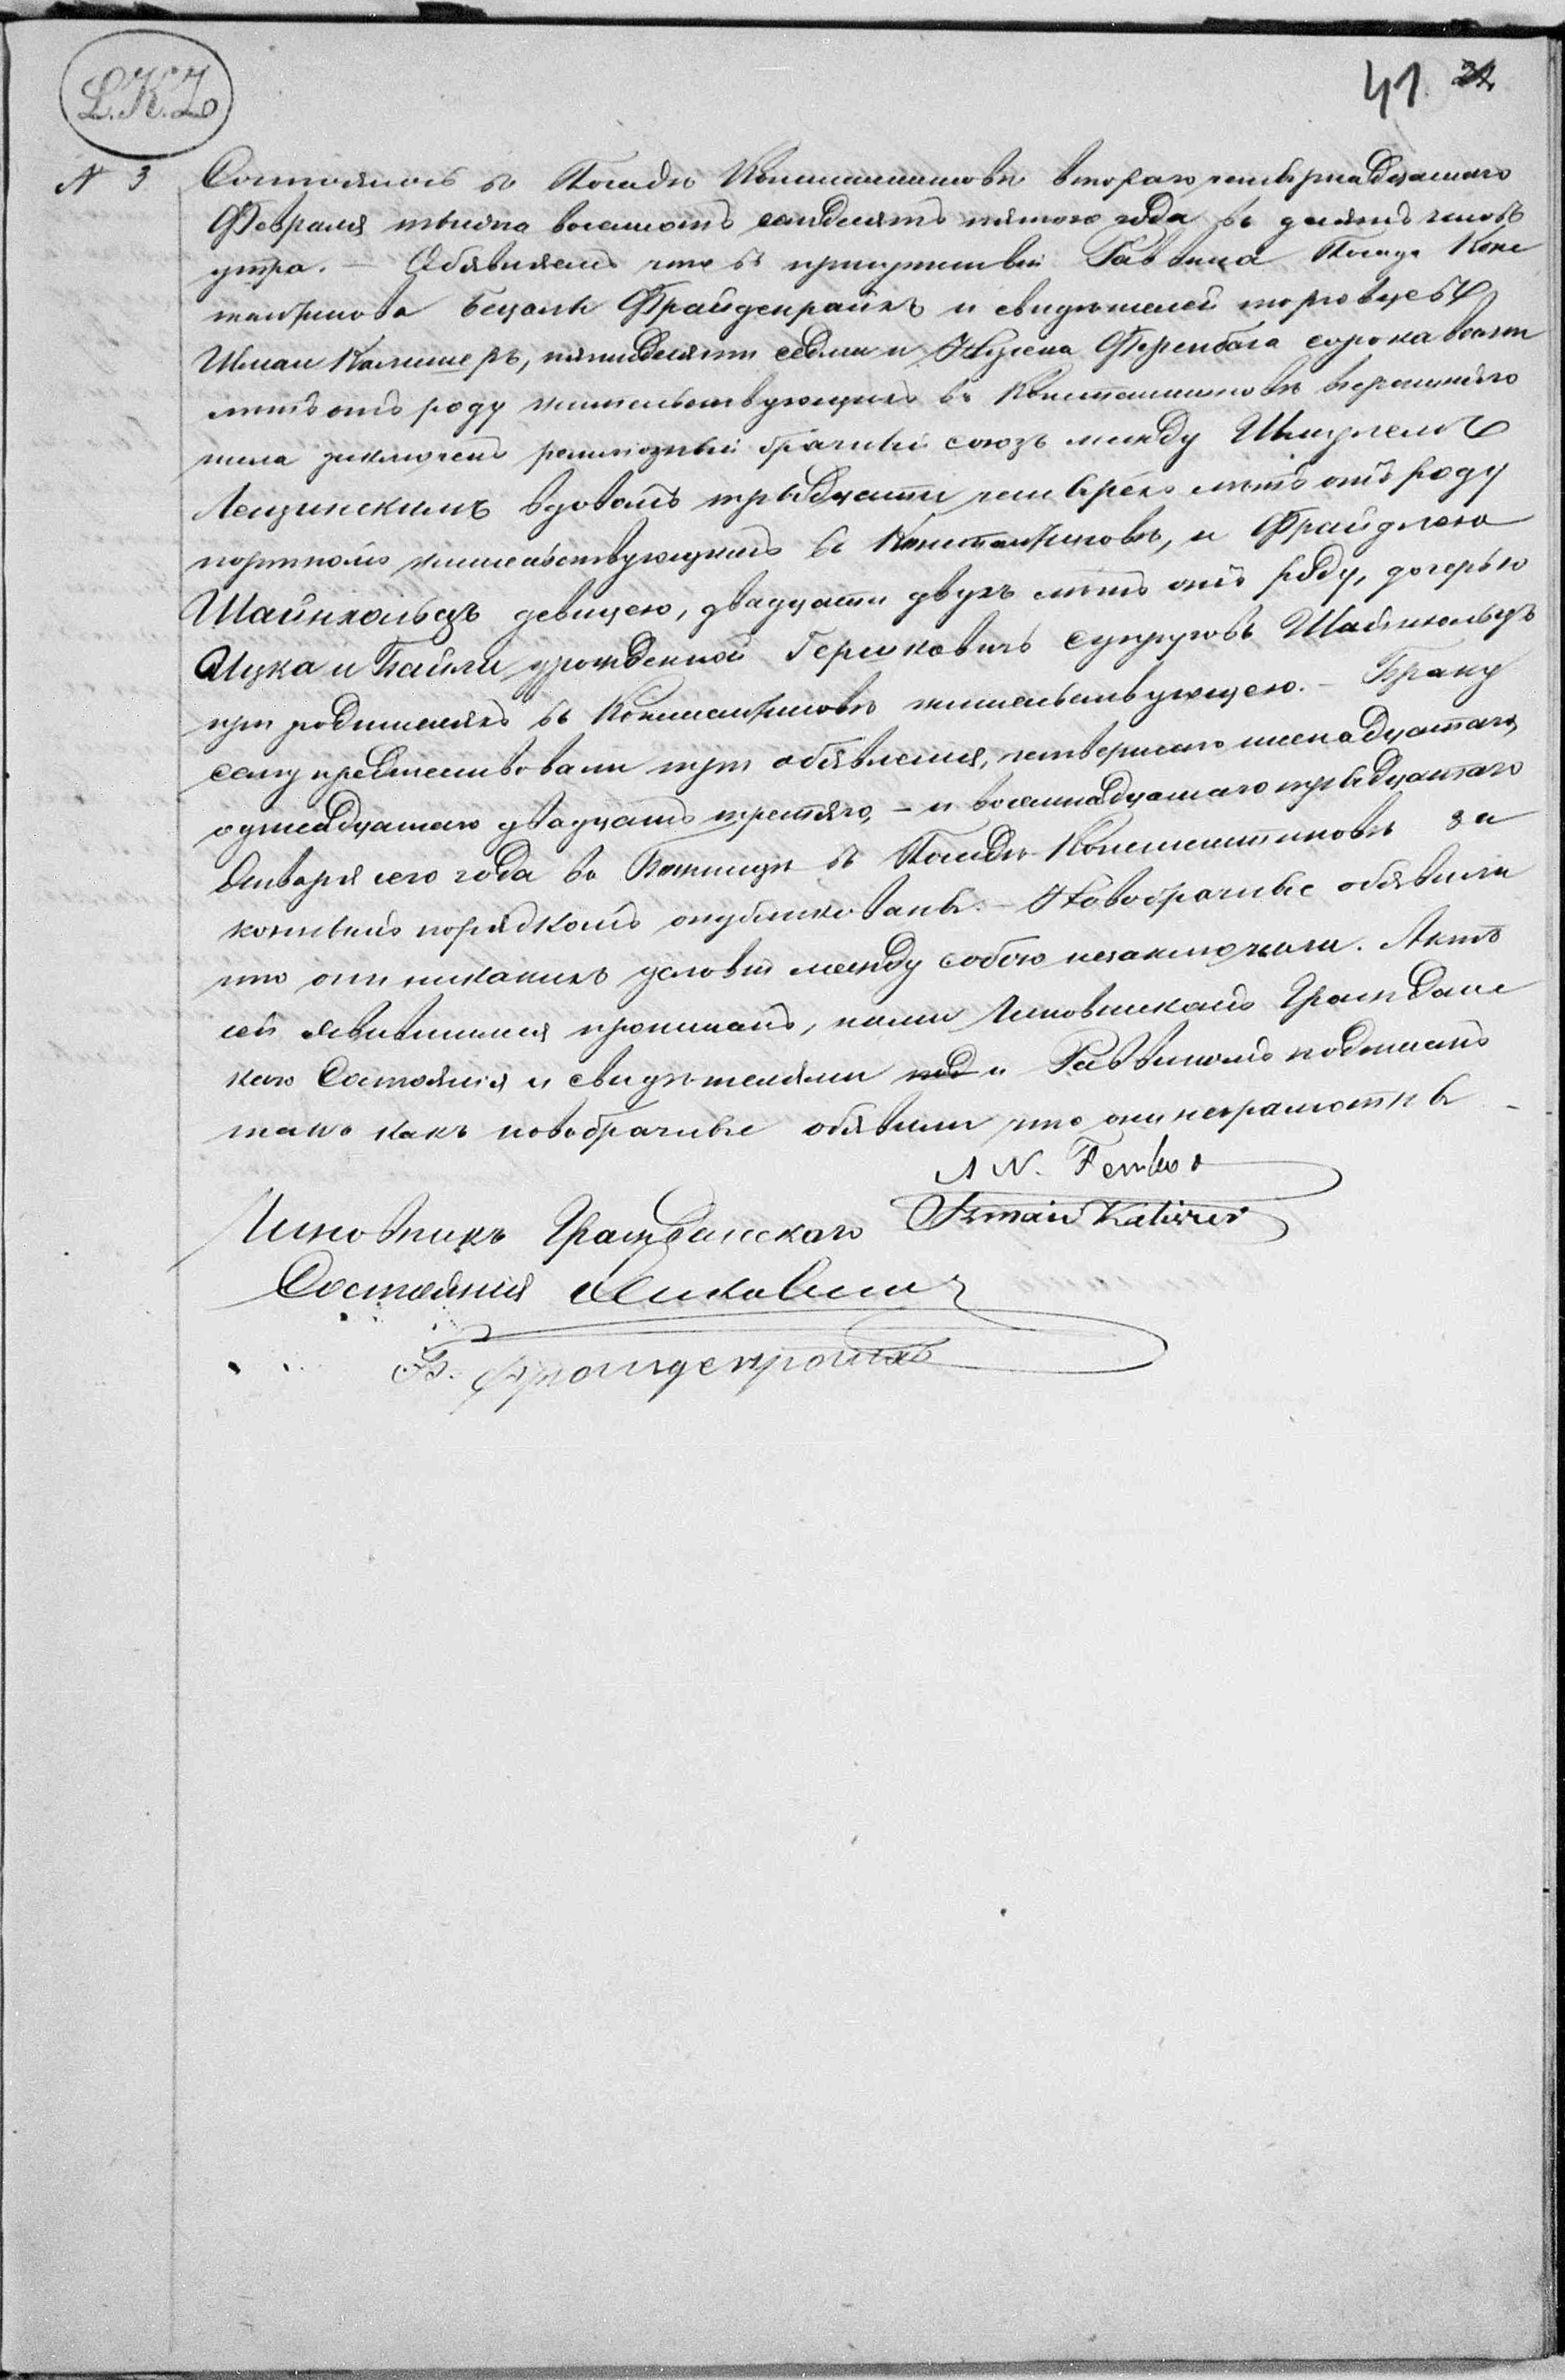 L.K.Z
41 32
N 3 Состоялось въ Посадѣ Константиновѣ втораго четырнадцатаго
Февраля тысяча восемьсотъ семдесять пятого года въ десять часовъ
утра. — Объявляемъ что въ присутствіи Раввина Посада Конс
тантинова Бецаля Фрайденрайхъ и свидѣтелей торговцевъ
Шмаи Калишеръ, пятидесяти седми и Нусена Ференбаха сорока восми
лѣтъ отъ роду жительствующихъ въ Константиновѣ вчерашняго
числа заключенъ религіозный брачный союзъ между Шмулемъ
Лещинскимъ вдовамъ тридцати четырехъ лѣтъ отъ роду
портнымъ жительствующимъ въ Константиновѣ, и Фрайдлею
Шайнхольцъ девицею, двадцати двухъ лѣтъ отъ роду, дочерью
Ицка и Байли урожденной Гершковичъ супруговъ Шайнхольцъ
при родителяхъ въ Константиновѣ жительствующею. — Браку
сему предшествовали три объявленія, четвертаго шеснадцатаго,
одинадцатаго двадцать третяго, — и восемнадцатаго тридцатаго
Января сего года въ Божницѣ въ Посадѣ Константиновѣ за
коннымъ порядкомъ опубликованы. — Новобрачные объявили
что они никакихъ условій между собою незаключили. Актъ
сей явившимся прочитанъ, нами Чиновникомъ Гражданс
каго Состоянія и свидѣтелями под и Раввиномъ подписанъ
такъ какъ новобрачные объявили что они неграмотны —
Szmai Kaliszer
Чиновникъ Гражданскаго
Состоянія
Б. Фройденройхъ